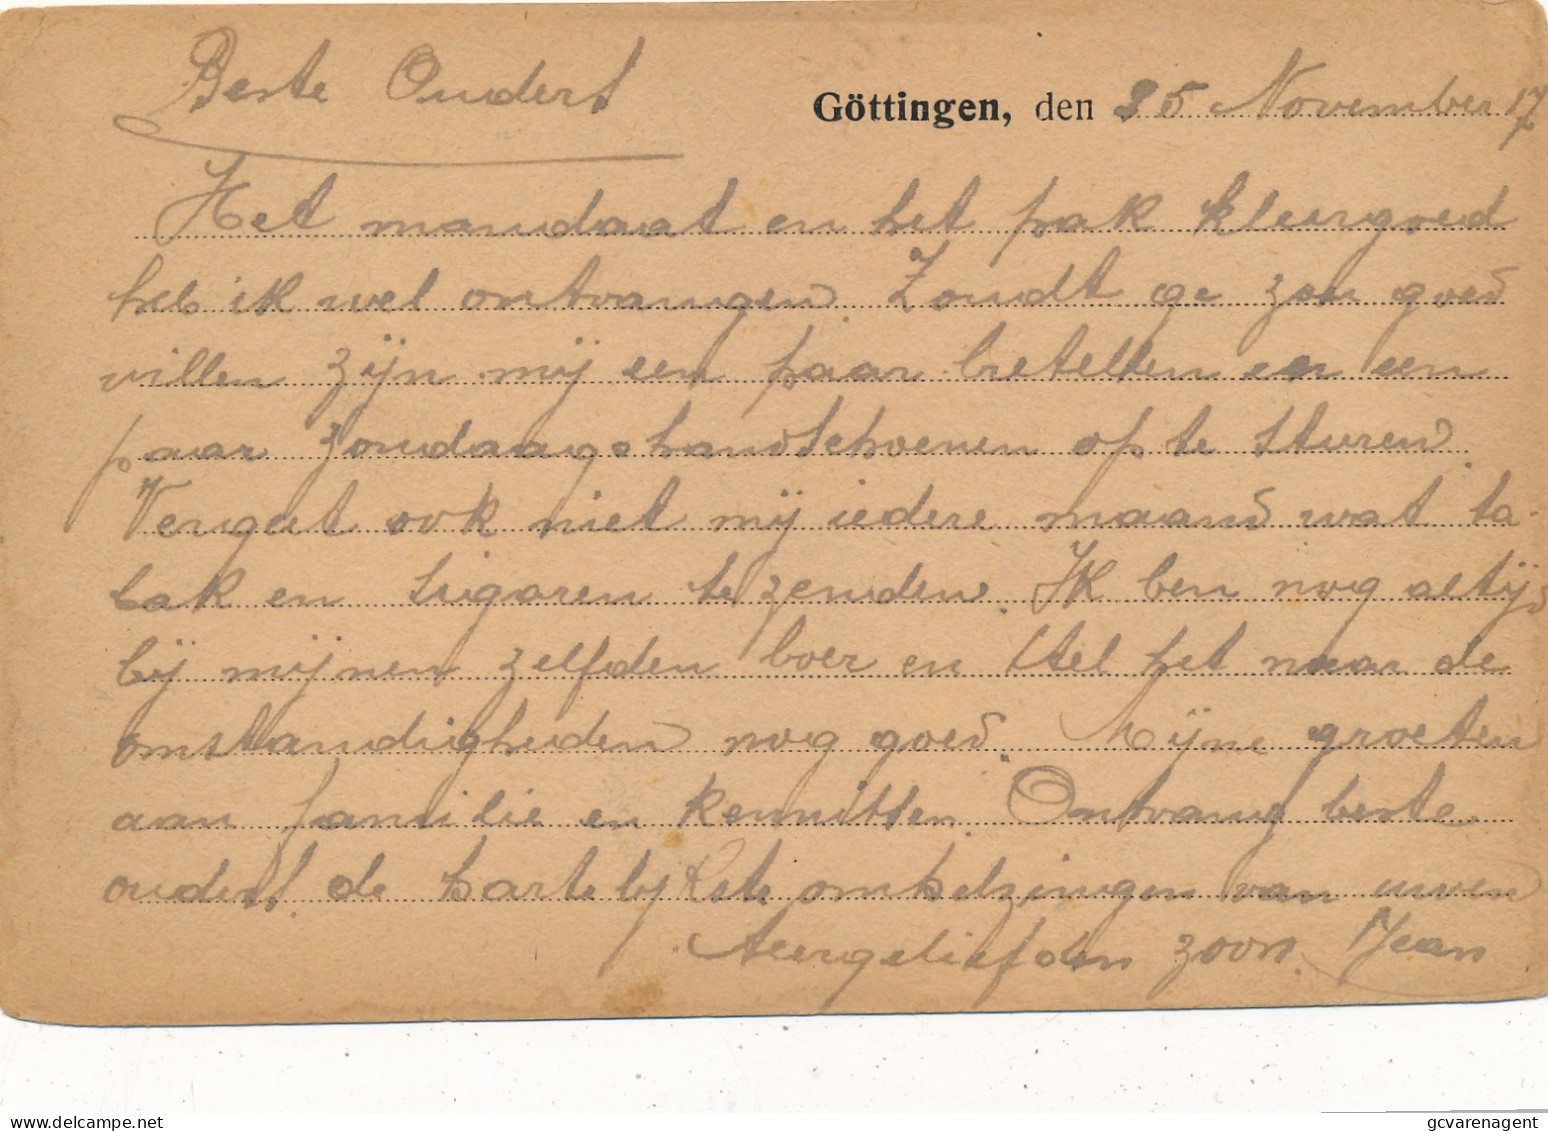 Beste Ouders
Göttingen, den 25 November 17
Het mandaat en het pak kleergoed
heb ik wel ontvangen. Zoudt ge zoo goed
willen zijn mij een paar bretellen en een
paar zondaagshandschoenen op te sturen.
Vergeet ook niet mij iedere maand wat ta-
bak en sigaren te zenden. Ik ben nog altijd
bij mijnen zelfden boer en stel het naar de
omstandigheden nog goed. Mijne groeten
aan familie en kennissen. Ontvang beste
ouders de hartelijkste omhelzingen van uwen
teergeliefden zoon. Jean
gcvarenagent.com